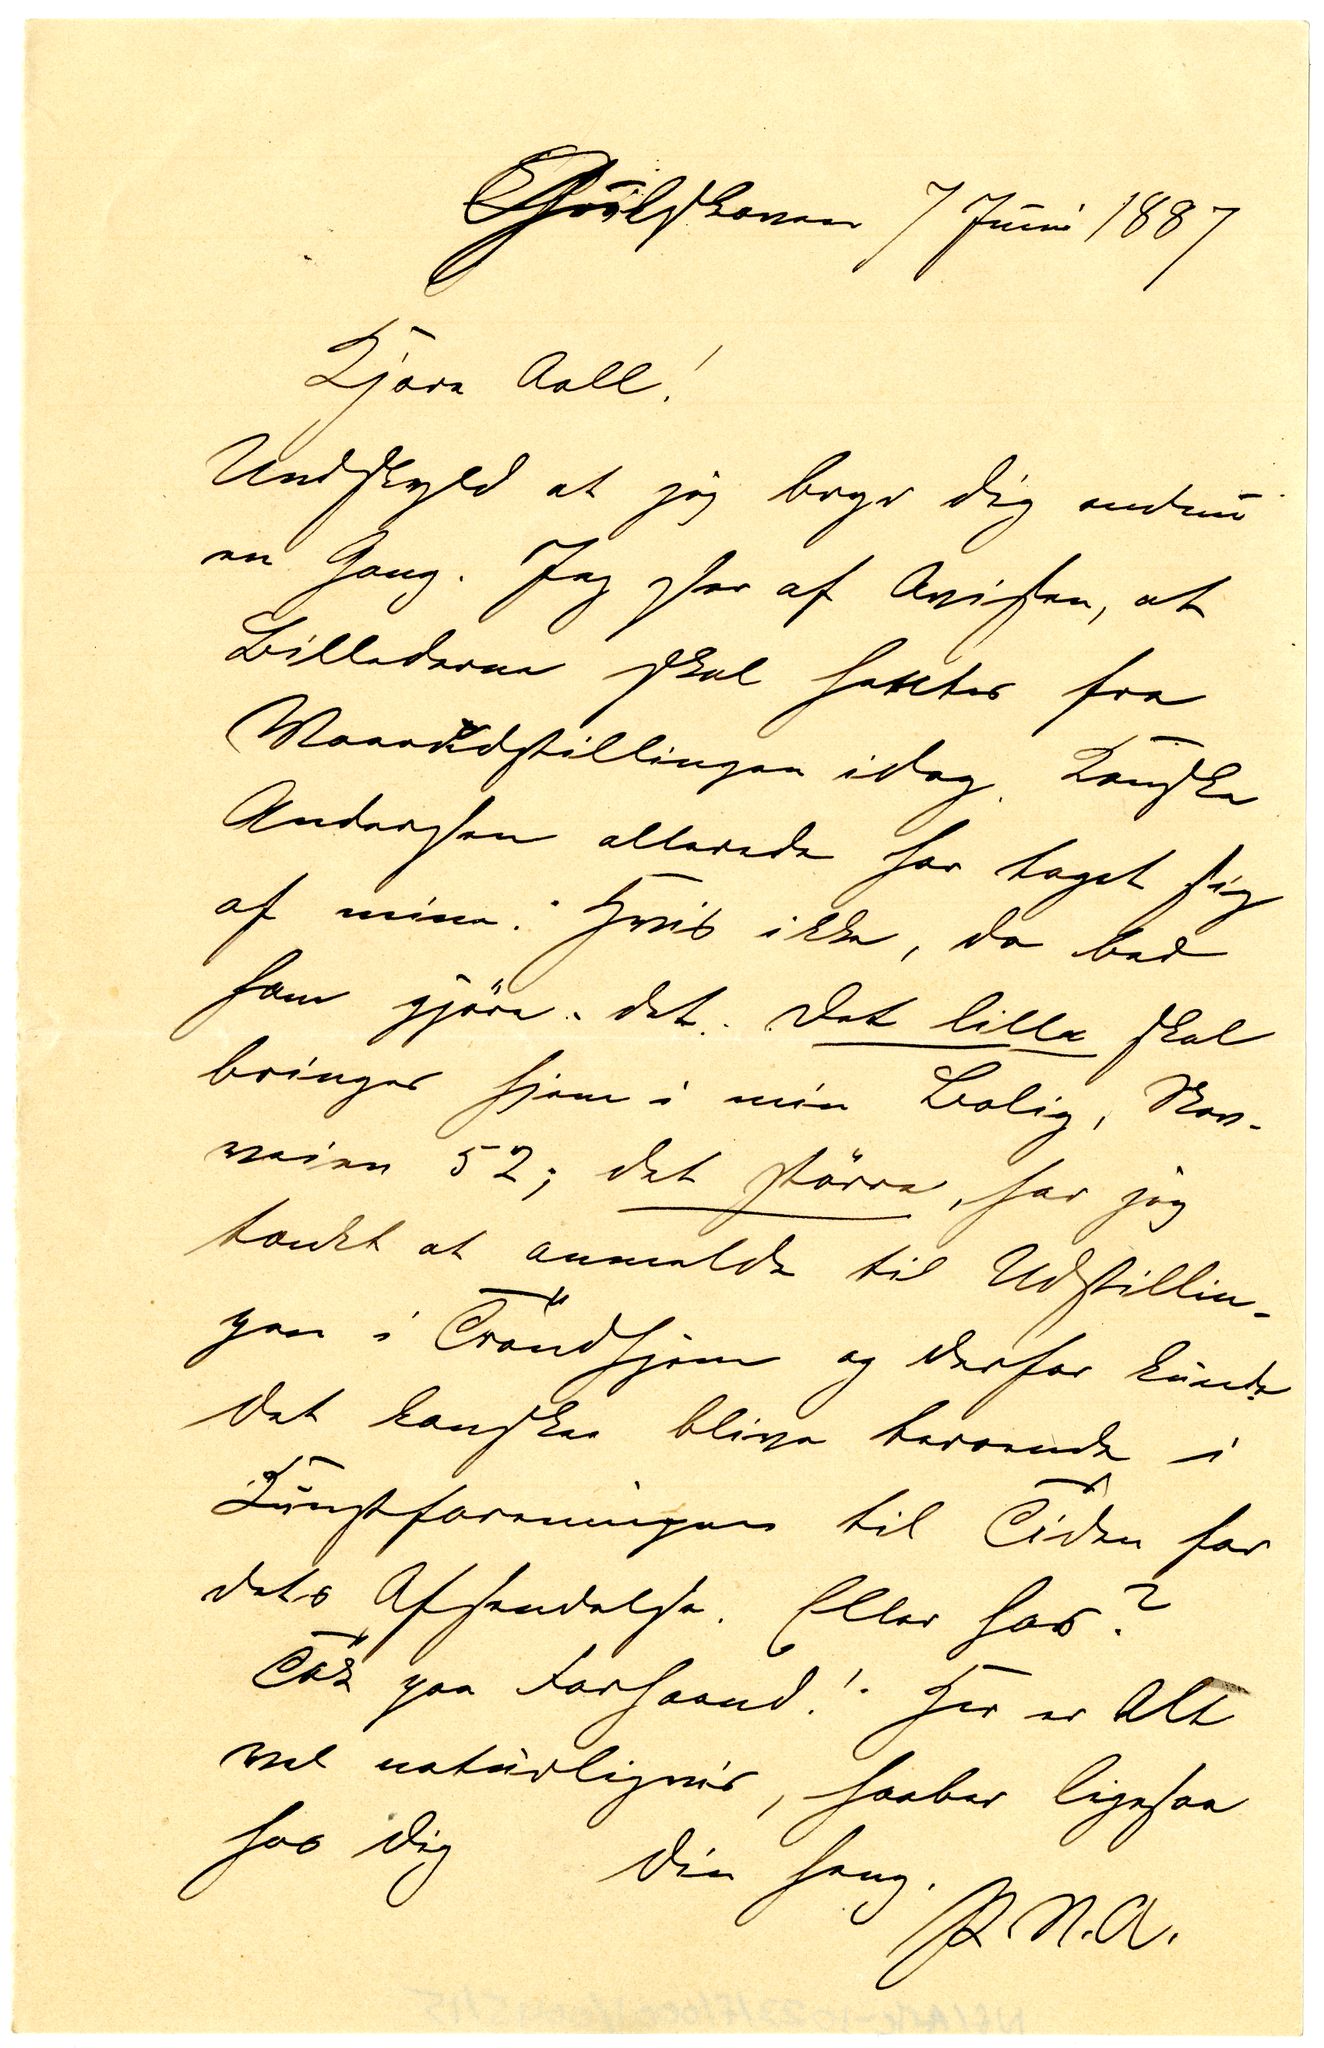 7 Juni 1887
Kjære Aall!
Undskyld at jeg bryr Dig endnu
en Gang. Jeg ser af Avisen, at
Billederne skal hentes fra
Vaarudstillingen idag. Kanske
Andersen allerede har taget sig
af mine. Hvis ikke, da bed
ham gjøre det. Det lille skal
bringes hjem i min Bolig,
veien 52; det större, har jeg
tænkt at anmelde til Udstillin-
gen i Tröndhjem og derfor kunde
det kanske blive beroende i
Kunstforeningen til Tiden for
dets Afsendelse. Eller hos?
Tak paa Forhaand! Her er Alt
vel naturligvis, haaber ligesaa
hos Dig Din heng.
P.N.A.